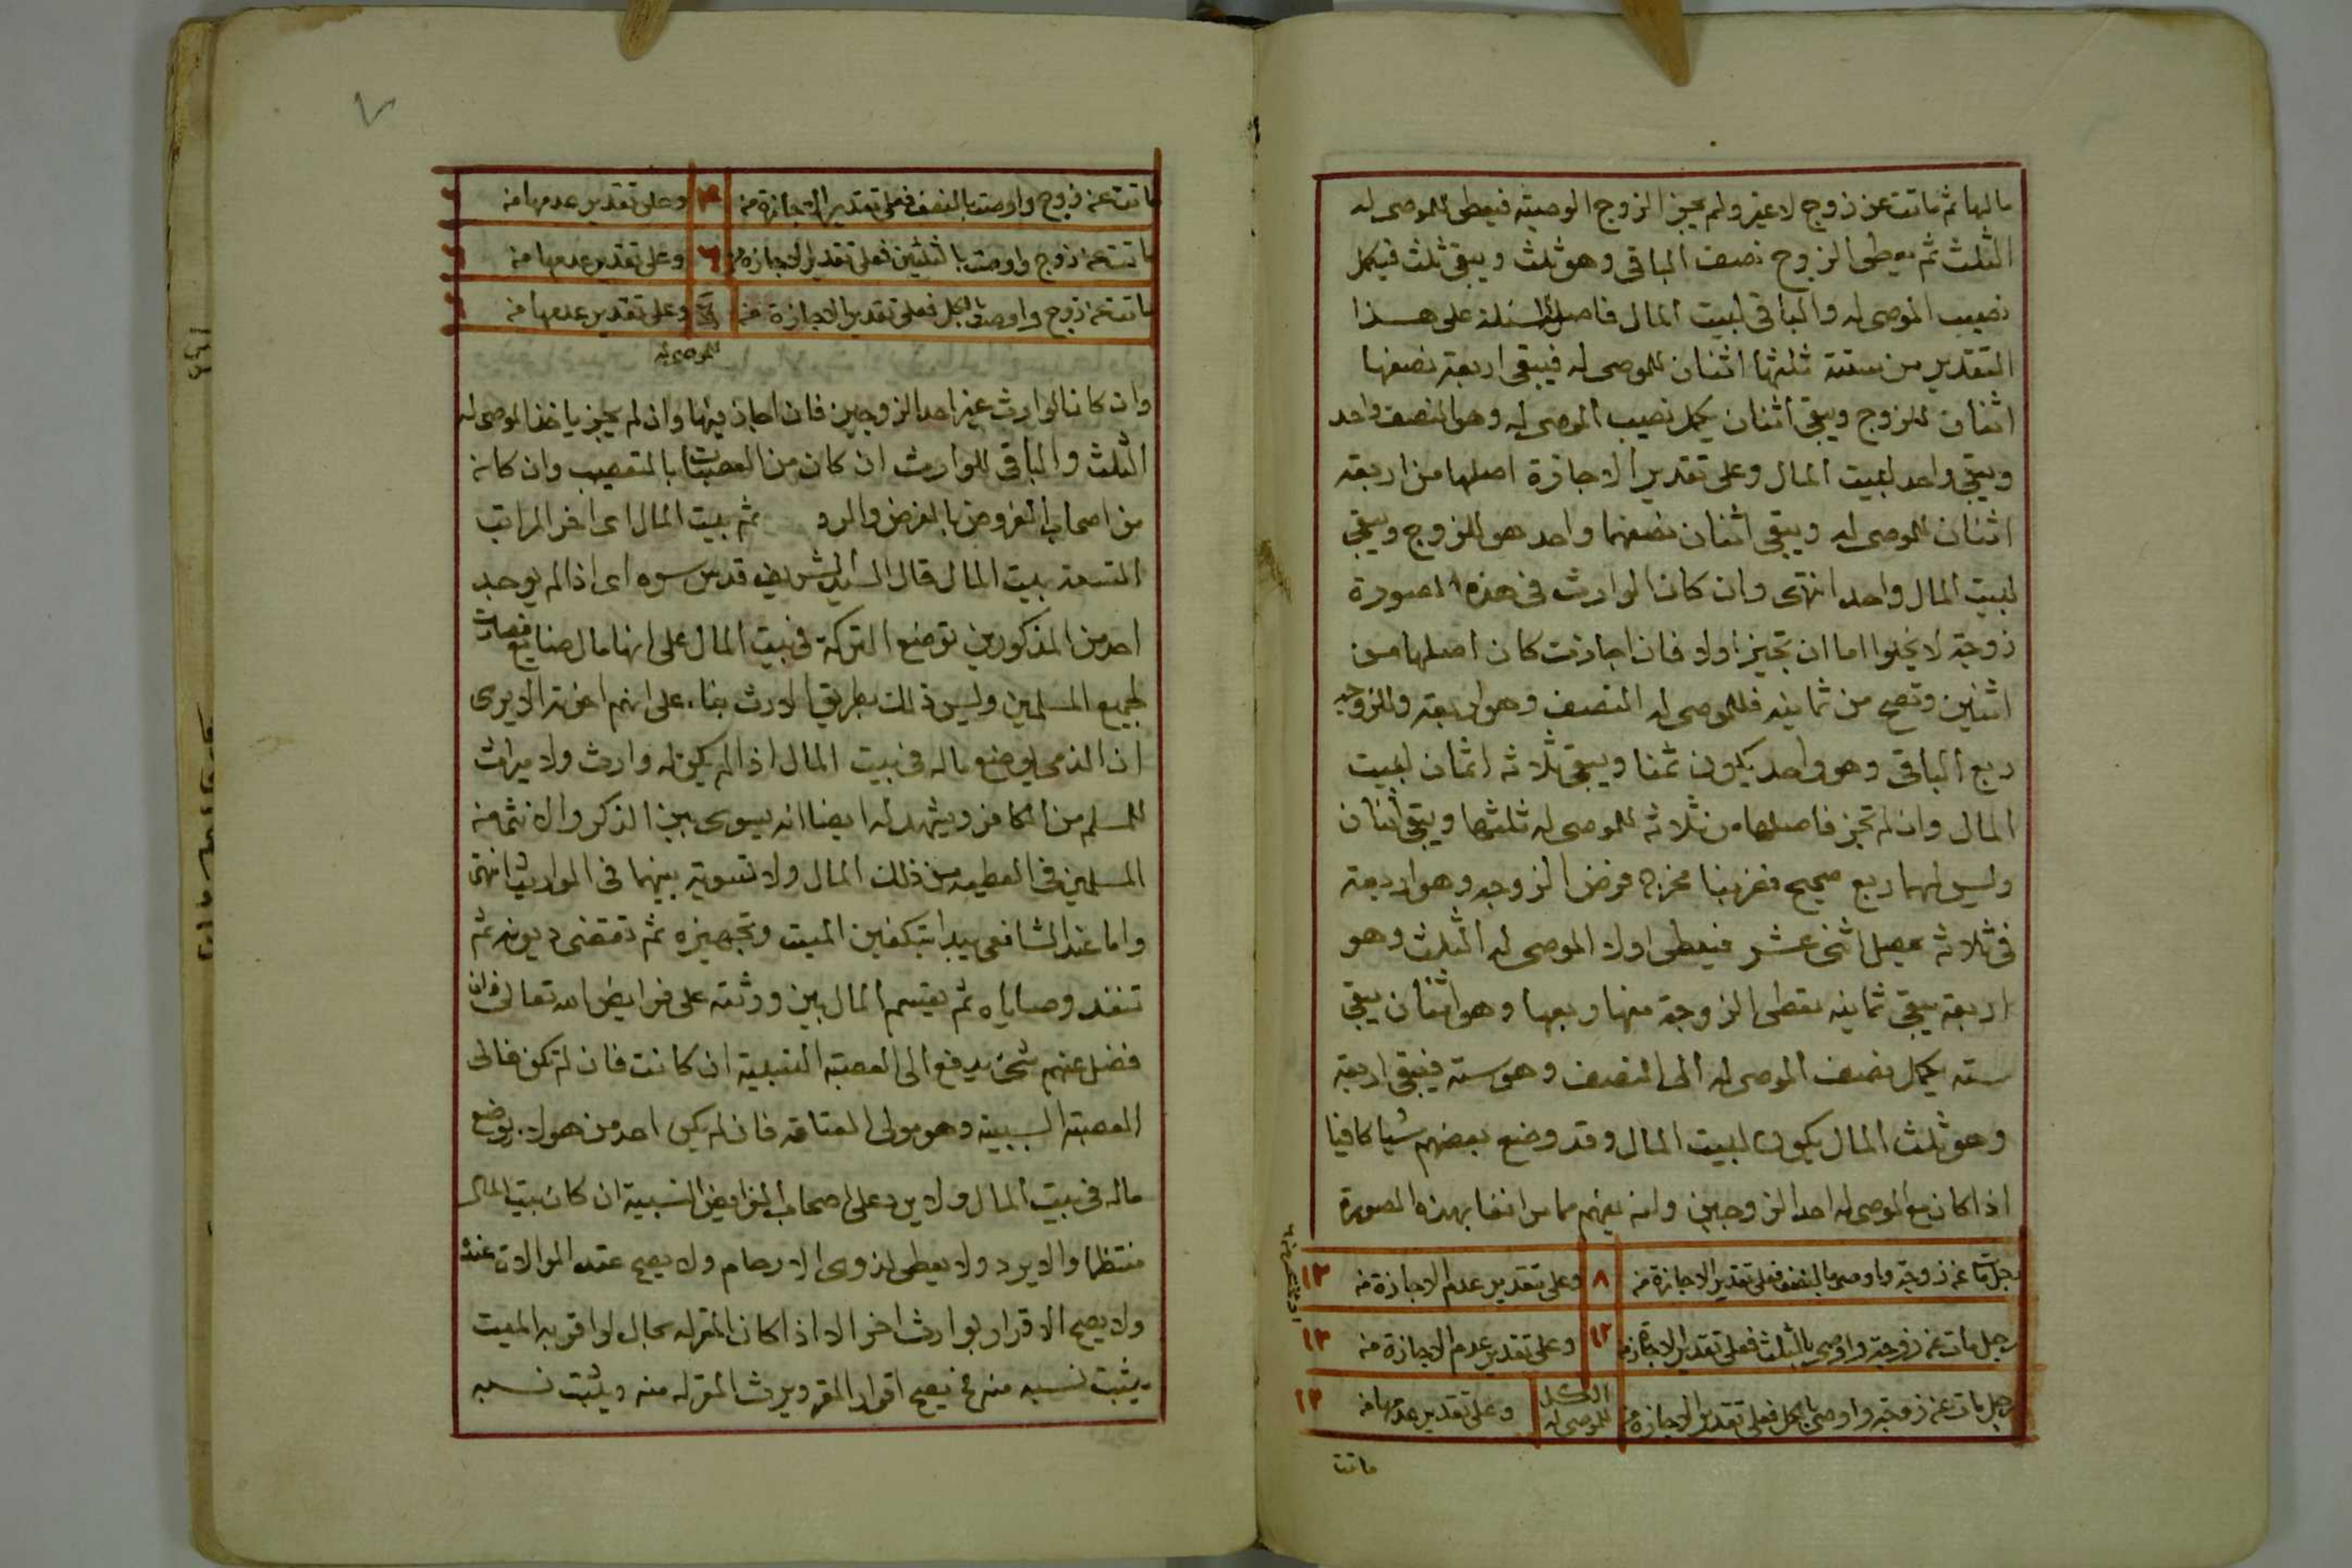 مالها ثم ماتت عن زوج لا غير ولم يجز الزوج الوصية فيعطى للموصى له
الثلث ثم يعطى الزوج نصف الباقى وهو ثلث ويبقى ثلث فيكمل
نصيب الموصى له والباقى لبيت المال فاصل المسئلة على هذا
التقدير من ستة ثلثها اثنان للموصى له فيبقى اربعة نصفها
اثنان للزوج ويبقى اثنان يكمل نصيب الموصى له وهو النصف واحد
ويبقى واحد لبيت المال وعلى تقدير الاجازة اصلها من اربعة
اثنان للموصى له ويبقى اثنان نصفهما واحد هو للزوج ويبقى
لبيت المال واحد انتهى وان كان الوارث فى هذه الصورة
زوجة لا يخلوا اما ان تجيز اولا فان اجازت كان اصلها من
اثنين وتصح من ثمانية فللموصى له النصف وهو اربعة وللزوجة
ربع الباقى وهو واحد يكون ثمنا ويبقى ثلاثة اثمان لبيت
المال وان لم تجز فاصلها من ثلاثة للموصى له ثلثها ويبقى اثنان
وليس لهما ربع صحيح فضربنا مخرج فرض الزوجة وهو اربعة
فى ثلاثة حصل اثنى عشر فيعطى اولا الموصى له الثلث وهو
اربعة يبقى ثمانية تعطى الزوجة منها ربعها وهو اثنان يبقى
ستة يكمل نصف الموصى له الى النصف وهو ستة فيبقى اربعة
وهو ثلث المال يكون لبيت المال وقد وضع بعضهم شيا كافيا
اذا كان مع الموصى له احد الزوجين وانه يفهم مما مر انفا بهذه الصورة
رجل مات عن زوجة واوصى بالنصف فعلى تقدير الاجازة من ٨ وعلى تقدير عدم الاجازة من ١٢
رجل مات عن زوجة واوصى بالثلث فعلى تقدير الاجازة من ١٢ وعلى تقدير عدم الاجازة من ١٢
رجل مات عن زوجة واوصى بالكل فعلى تقدير الاجازة من الكل للموصى له وعلى تقدير عدمها من ١٢
ماتت
٧
ماتت عن زوج واوصت بالنصف فعلى تقدير الاجازة من ٤ وعلى تقدير عدمها من ٦
ماتت عن زوج واوصت بالثلثين فعلى تقدير الاجازة من ٦ وعلى تقدير عدمها من ٦
ماتت عن زوج واوصت بالكل فعلى تقدير الاجازة من الكل وعلى تقدير عدمها من ٦
للموصى له
وان كان الوارث غير احد الزوجين فان اجاز فيها وان لم يجز ياخذ الموصى له
الثلث والباقى للوارث ان كان من العصبات بالتعصيب وان كان
من اصحاب الفروض بالفرض والرد ثم بيت المال اى اخر المراتب
التسعة بيت المال قال السيد الشريف قدس سره اى اذا لم يوجد
احد من المذكورين توضع التركة فى بيت المال على انها مال ضايع فصارت
لجميع المسلمين وليس ذلك بطريق الارث بناء على انهم اخوة الا يرى
ان الذمى يوضع ماله فى بيت المال اذا لم يكن له وارث ولا ميراث
للمسلم من الكافر ويشهد له ايضا انه يسوى بين الذكر والانثى من
المسلمين فى العطية من ذلك المال ولا تسوية بينهما فى المواريث انتهى
واما عند الشافعى يبدا بتكفين الميت وتجهيزه ثم تقضى ديونه ثم
تنفذ وصاياه ثم يقسم المال بين ورثته على فرايض الله تعالى فان
فضل عنهم شئ يدفع الى العصبة النسبية ان كانت فان لم تكن فالى
العصبة السببية وهو مولى العتاقة فان لم يكن احد من هولاء يوضع
ماله فى بيت المال ولا يرد على اصحاب الفرايض النسبية ان كان بيت المال
منتظما والا يرد ولا يعطى لذوى الارحام ولا يصح عقد الموالات عنده
ولا يصح الاقرار بوارث اخر الا اذا كان المقر له بحال لو اقر به الميت
يثبت نسبه منه فح يصح اقرار المقر ويرث المقر له منه ويثبت نسبه